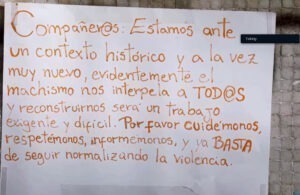 Compañer@s: Estamos ante
un contexto histórico y a la vez
muy nuevo, evidentemente el
machismo nos interpela a TOD@S
y reconstruirnos será un trabajo
exigente y difícil. Por favor cuidémonos,
respetémonos, informémonos, y ya BASTA
de seguir normalizando la violencia.